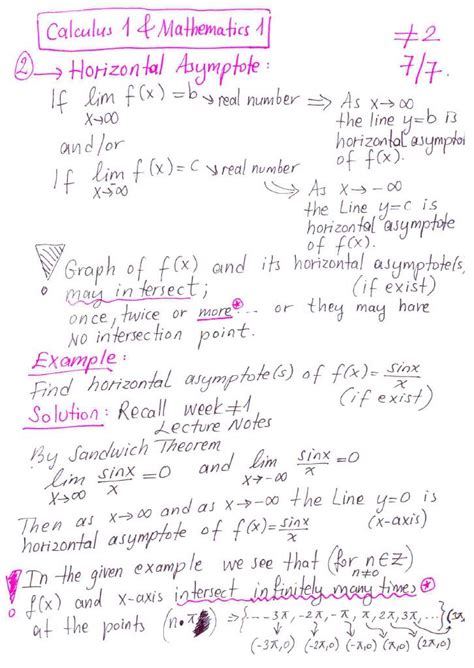 Calculus 1 & Mathematics 1
#2
7/7.
② → Horizontal Asymptote:
If lim f(x) = b → real number ⇒ As x→∞
x→∞
the line y=b is
and/or
horizontal asymptote
of f(x).
If lim f(x) = c → real number
x→-∞
As x→ -∞
the Line y=c is
horizontal asymptote
of f(x).
! Graph of f(x) and its horizontal asymptote(s)
may intersect;
(if exist)
once, twice or more* ... or they may have
NO intersection point.
Example:
Find horizontal asymptote(s) of f(x) = sinx/x
(if exist)
Solution: Recall week #1
Lecture Notes
By Sandwich Theorem
lim sinx/x = 0 and lim sinx/x = 0
x→∞ x→-∞
Then as x→∞ and as x→-∞ the Line y=0 is
(x-axis)
horizontal asymptote of f(x) = sinx/x
! In the given example we see that (for n∈Z)
n≠0
f(x) and x-axis intersect infinitely many times *
at the points (n·π ⇒{---3π, -2π, -π, π, 2π, 3π, ...}
(-3π,0) (-2π,0) (-π,0) (π,0) (2π,0)